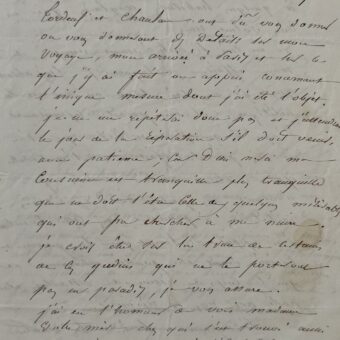 et chanlou, ont dû vous donner
ou vous donneront des details sur mon
voyage, mon arrivée à Paris et sur ce
que j'y ai fait ou appris concernant
l'inique mesure dont j'ai été l'objet.
je ne me répéterai donc pas et j'attendrai
le jour de la réparation s'il doit venir,
avec patience; car Dieu merci ma
Conscience est tranquille plus tranquille
que ne doit l'être celle de quelques misérables
qui ont pu chercher à me nuire.
je crois être sur la trace de certains
de ces gredins qui ne le porteront
pas en paradis je vous assure.
j'ai eu l'honneur de voir madame
chez qui s'est trouvé aussi